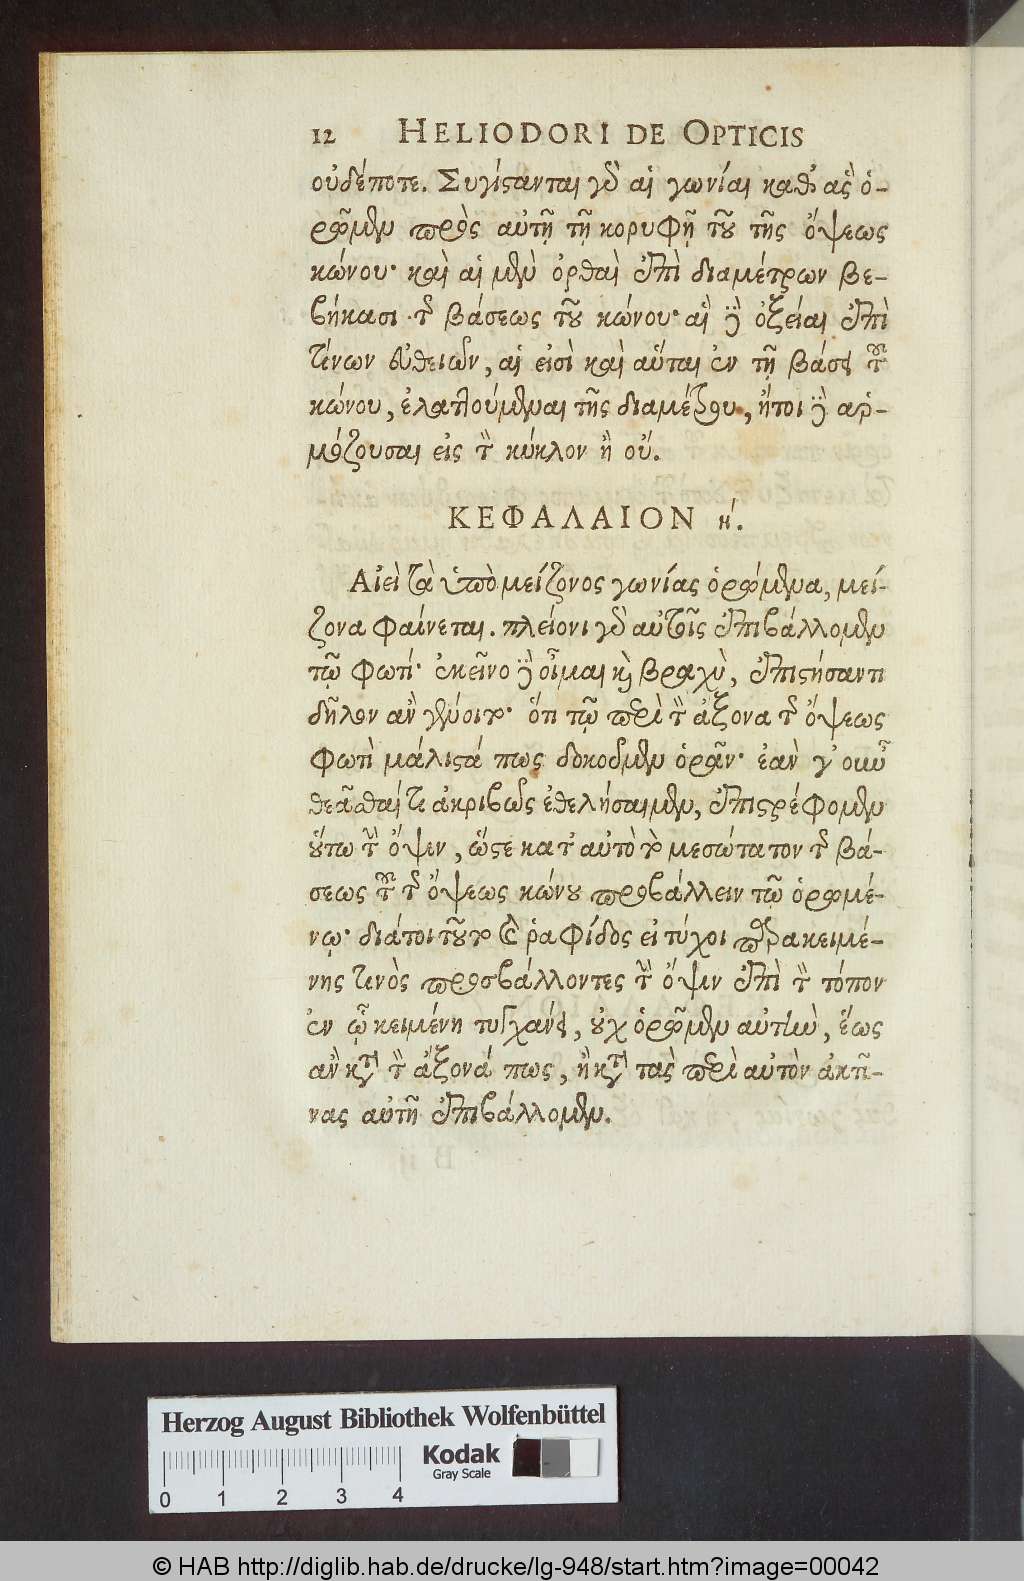 12 HELIODORI DE OPTICIS
οὐδέποτε. Συνίστανται γὰρ αἱ γωνίαι καθ' ἃς ὁ-
ρῶμεν πρὸς αὐτῇ τῇ κορυφῇ τοῦ τῆς ὄψεως
κώνου· καὶ αἱ μὲν ὀρθαὶ ἐπὶ διαμέτρων βε-
βήκασι τῆς βάσεως τοῦ κώνου· αἱ δὲ ὀξεῖαι ἐπὶ
τίνων εὐθειῶν, αἱ εἰσὶ καὶ αὗται ἐν τῇ βάσει τοῦ
κώνου, ἐλαττούμεναι τῆς διαμέτρου, ἤτοι δὲ αρ-
μόζουσαι εἰς τὸν κύκλον ἢ οὔ.
ΚΕΦΑΛΑΙΟΝ η΄.
Αἰεὶ τὰ ὑπὸ μείζονος γωνίας ὁρώμενα, μεί-
ζονα φαίνεται. πλείονι γὰρ αὐτοῖς ἐπιβάλλομεν
τῷ φωτί· ἐκεῖνο δὲ οἶμαι καὶ βραχὺ, ἐπιστήσαντι
δῆλον ἂν γένοιτο· ὅτι τῷ περὶ τὸν ἄξονα τῆς ὄψεως
φωτὶ μάλιστά πως δοκοῦμεν ὁρᾶν· ἐὰν γ' οὖν
θεᾶσθαί τι ἀκριβῶς ἐθελήσαιμεν, ἐπιστρέφομεν
οὕτω τὴν ὄψιν, ὥστε κατ' αὐτὸ τὸ μεσώτατον τῆς βά-
σεως τοῦ τῆς ὄψεως κώνου προβάλλειν τῷ ὁρωμέ-
νῳ· διάτοι τοῦτο καὶ ῥαφίδος εἰ τύχοι παρακειμέ-
νης τινὸς προσβάλλοντες τὴν ὄψιν ἐπὶ τὸν τόπον
ἐν ᾧ κειμένη τυγχάνει, οὐχ ὁρῶμεν αὐτὴν, ἕως
ἂν κατὰ τὸν ἄξονά πως, ἢ κατὰ τὰς περὶ αὐτὸν ἀκτῖ-
νας αὐτῇ ἐπιβάλλομεν.
Herzog August Bibliothek Wolfenbüttel
Kodak
Gray Scale
0 1 2 3 4
© HAB http://diglib.hab.de/drucke/lg-948/start.htm?image=00042